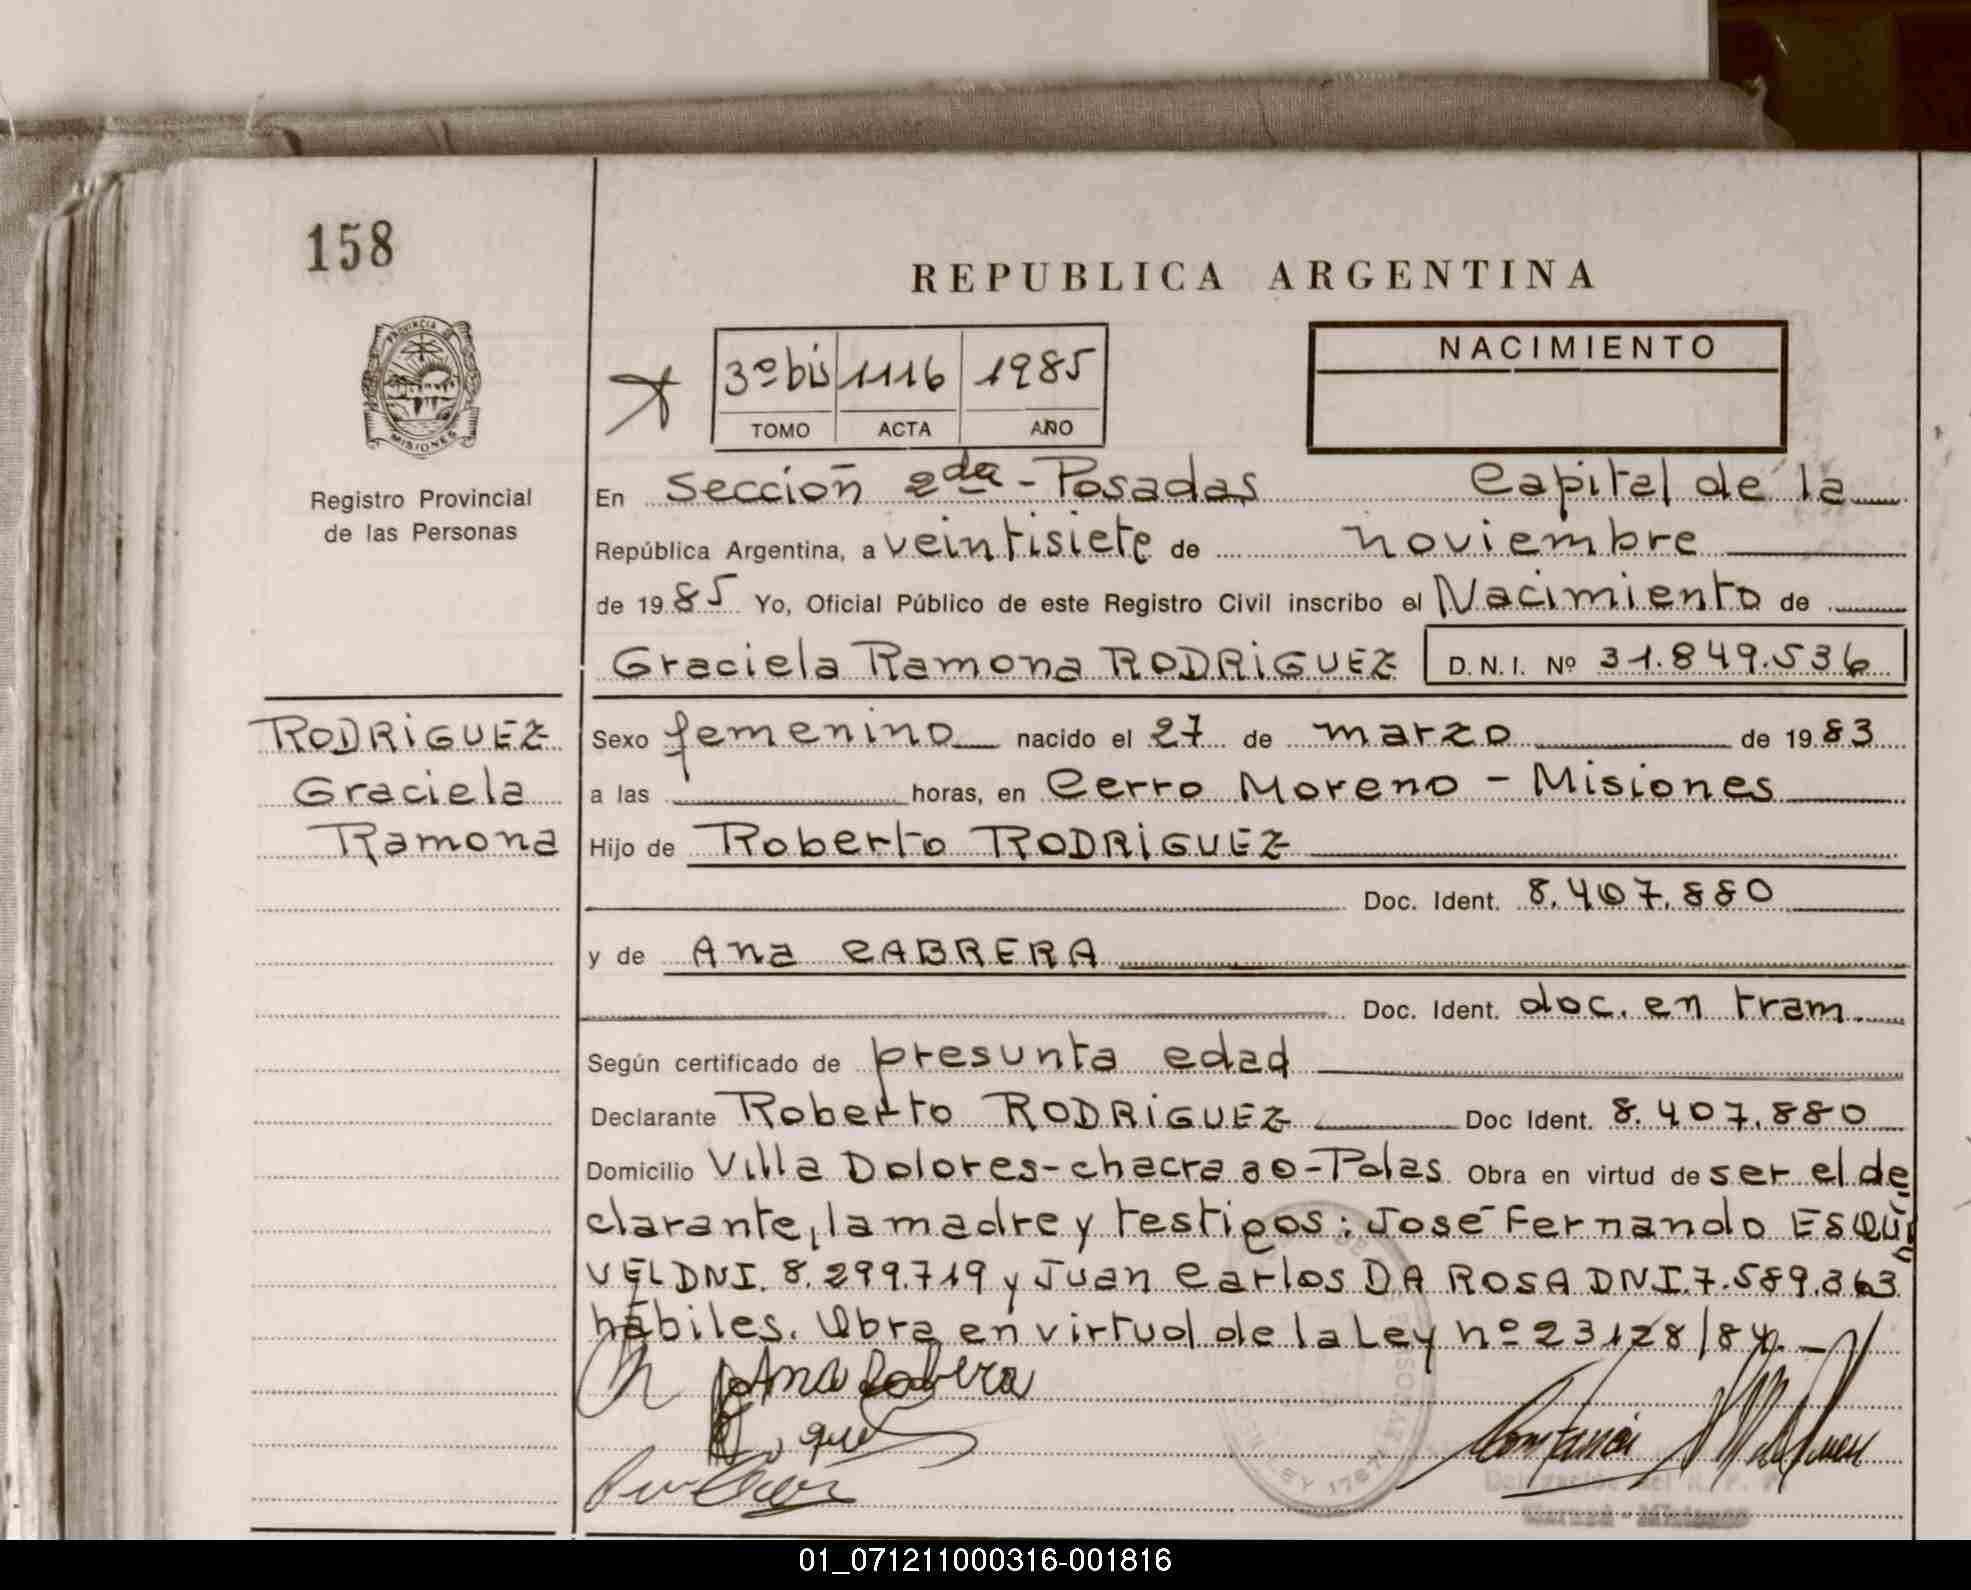 158
REPUBLICA ARGENTINA
PROVINCIA DE
MISIONES
Registro Provincial
de las Personas
3º bis 1116 1985
TOMO ACTA AÑO
NACIMIENTO
En Sección 2da - Posadas Capital de la
República Argentina, a veintisiete de noviembre
de 1985 Yo, Oficial Público de este Registro Civil inscribo el Nacimiento de
Graciela Ramona RODRiGUEZ D.N.I. Nº 31.849.536
RODRiGUEZ
Graciela
Ramona
Sexo femenino nacido el 27 de marzo de 1983
a las horas, en Cerro Moreno - Misiones
Hijo de Roberto RODRiGUEZ
Doc. Ident. 8.407.880
y de Ana CABRERA
Doc. Ident. doc. en tram.
Según certificado de presunta edad
Declarante Roberto RODRiGUEZ Doc Ident. 8.407.880
Domicilio Villa Dolores - chacra - Pdas Obra en virtud de ser el de
clarante, la madre y testigos: José Fernando ESQUI
VEL DNI. 8.299.719 y Juan Carlos DA ROSA DNI. 7.589.363
hábiles. Obra en virtud de la Ley nº 23128/84. -
Ana
01_071211000316-001816